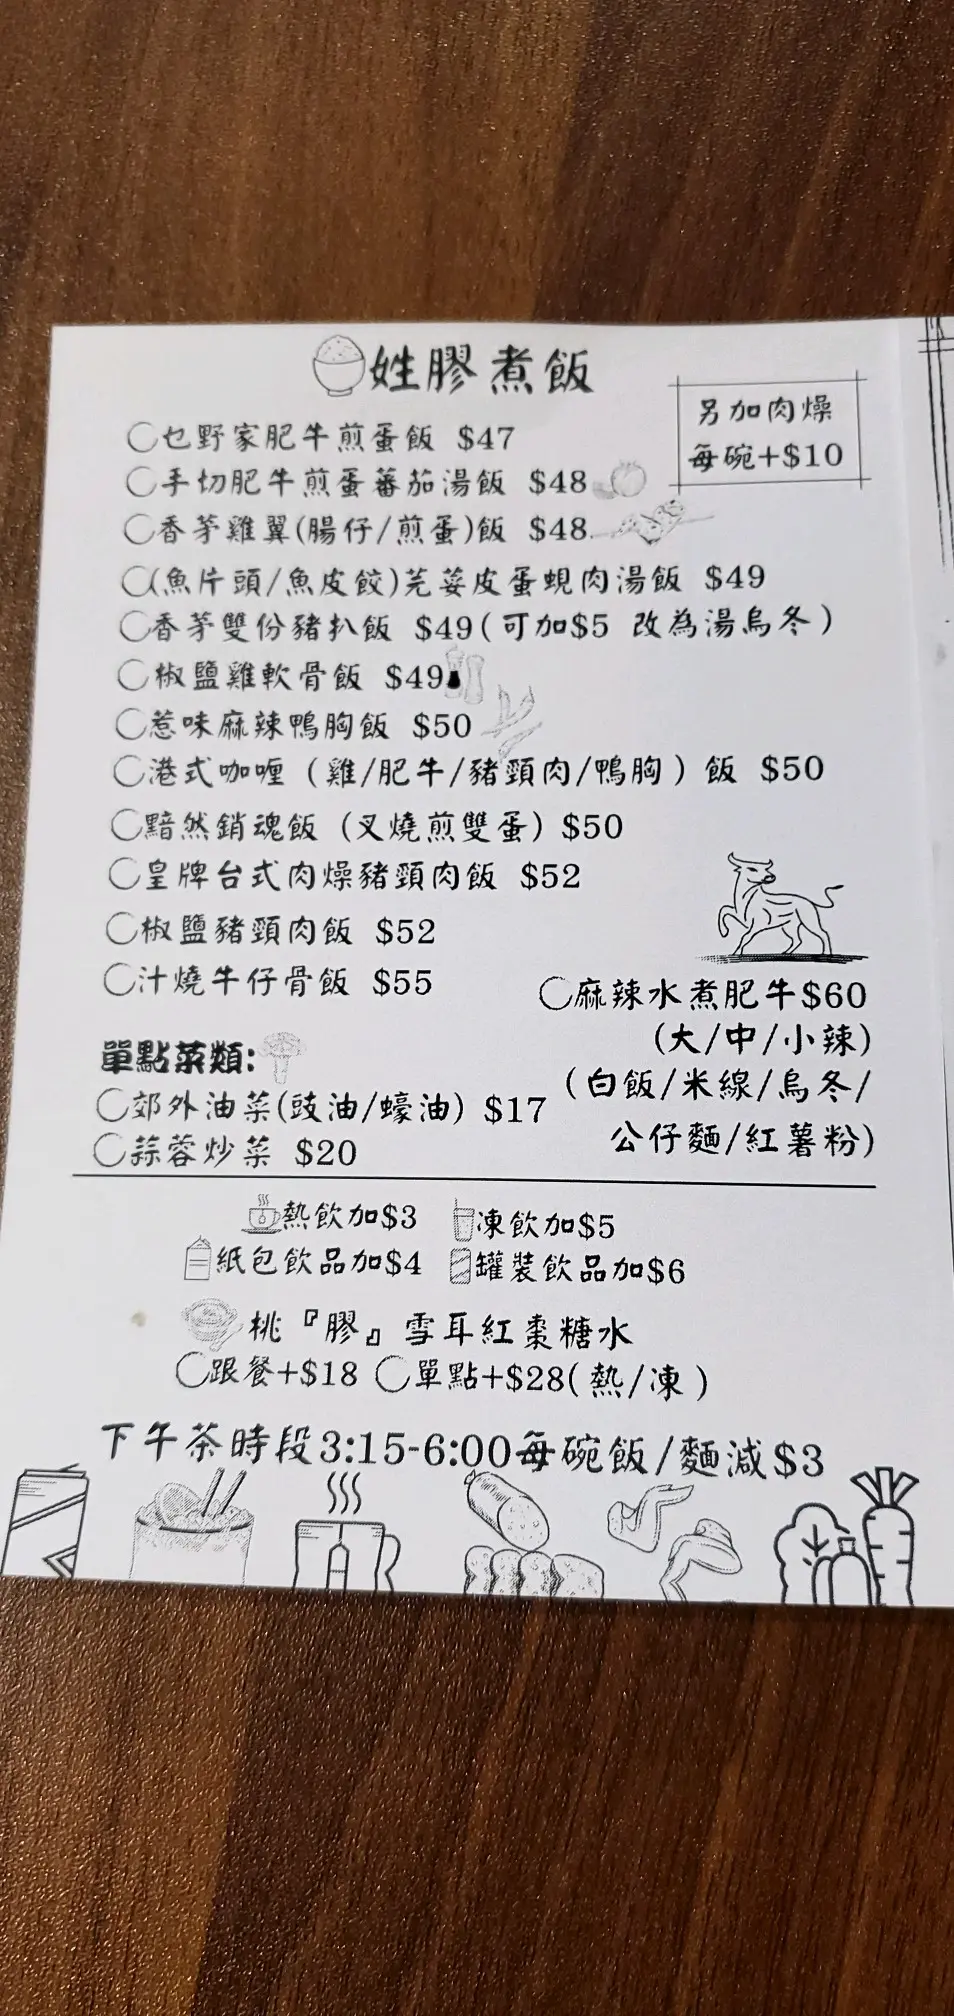 姓膠煮飯
另加肉燥
每碗+$10
乜野家肥牛煎蛋飯 $47
手切肥牛煎蛋蕃茄湯飯 $48
香茅雞翼(腸仔/煎蛋)飯 $48
(魚片頭/魚皮餃)芫荽皮蛋蜆肉湯飯 $49
香茅雙份豬扒飯 $49(可加$5 改為湯烏冬)
椒鹽雞軟骨飯 $49
惹味麻辣鴨胸飯 $50
港式咖喱(雞/肥牛/豬頸肉/鴨胸)飯 $50
黯然銷魂飯(叉燒煎雙蛋)$50
皇牌台式肉燥豬頸肉飯 $52
椒鹽豬頸肉飯 $52
汁燒牛仔骨飯 $55
麻辣水煮肥牛$60
(大/中/小辣)
(白飯/米線/烏冬/
公仔麵/紅薯粉)
單點菜類:
郊外油菜(豉油/蠔油) $17
蒜蓉炒菜 $20
熱飲加$3 凍飲加$5
紙包飲品加$4 罐裝飲品加$6
桃『膠』雪耳紅棗糖水
跟餐+$18 單點+$28(熱/凍)
下午茶時段3:15-6:00每碗飯/麵減$3